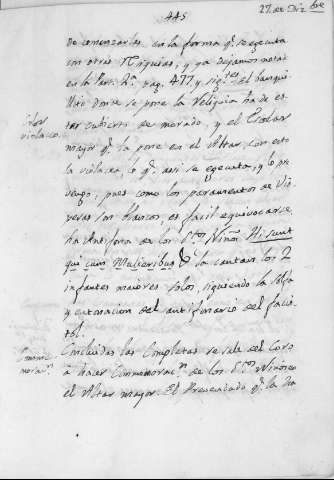 445
27. de Diz.bre
de comenzarlas en la forma q.e se egecuta
con otras Reliquias, y ya dejamos notado
en la Part. 2.a pag. 477 y sig.tes el banqui-
llito donde se pone la Reliquia ha de es-
tar cubierto de morado, y el Escolar
Color
violaceo.
mayor q.e la pone en el Altar con esto-
la violacea, lo q.e assi se egecuta, y lo pre-
vengo, pues como los paramentos de Vis-
peras son blancos, es facil equivocarse.
La Antifona de los S.tos Niños Hi sunt
qui cum Mulieribus la cantan los 2
infantes maiores solos, siguiendo la solfa
y entonacion del antifonario del facis-
tol.
Comme
morac.n
Concluidas las Completas se sale del Coro
a hacer Conmemorac.n de los S.tos Niños en
el Altar mayor. El Prevendado q.e la